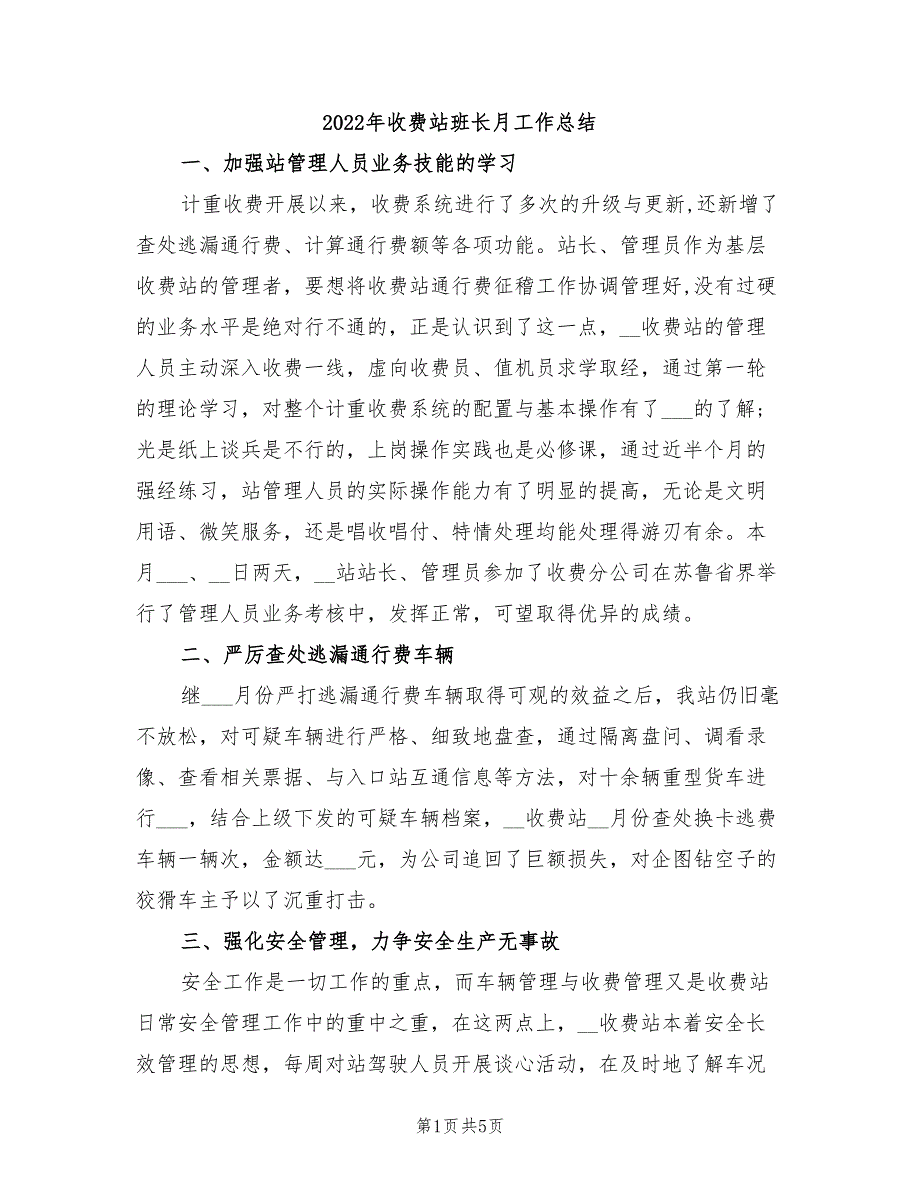 2022年收费站班长月工作总结
一、加强站管理人员业务技能的学习
计重收费开展以来，收费系统进行了多次的升级与更新,还新增了
查处逃漏通行费、计算通行费额等各项功能。站长、管理员作为基层
收费站的管理者，要想将收费站通行费征稽工作协调管理好,没有过硬
的业务水平是绝对行不通的，正是认识到了这一点，__收费站的管理
人员主动深入收费一线，虚向收费员、值机员求学取经，通过第一轮
的理论学习，对整个计重收费系统的配置与基本操作有了___的了解;
光是纸上谈兵是不行的，上岗操作实践也是必修课，通过近半个月的
强经练习，站管理人员的实际操作能力有了明显的提高，无论是文明
用语、微笑服务，还是唱收唱付、特情处理均能处理得游刃有余。本
月___、__日两天，__站站长、管理员参加了收费分公司在苏鲁省界举
行了管理人员业务考核中，发挥正常，可望取得优异的成绩。
二、严厉查处逃漏通行费车辆
继___月份严打逃漏通行费车辆取得可观的效益之后，我站仍旧毫
不放松，对可疑车辆进行严格、细致地盘查，通过隔离盘问、调看录
像、查看相关票据、与入口站互通信息等方法，对十余辆重型货车进
行___，结合上级下发的可疑车辆档案，__收费站__月份查处换卡逃费
车辆一辆次，金额达___元，为公司追回了巨额损失，对企图钻空子的
狡猾车主予以了沉重打击。
三、强化安全管理，力争安全生产无事故
安全工作是一切工作的重点，而车辆管理与收费管理又是收费站
日常安全管理工作中的重中之重，在这两点上，__收费站本着安全长
效管理的思想，每周对站驾驶人员开展谈心活动，在及时地了解车况
第1页共5页